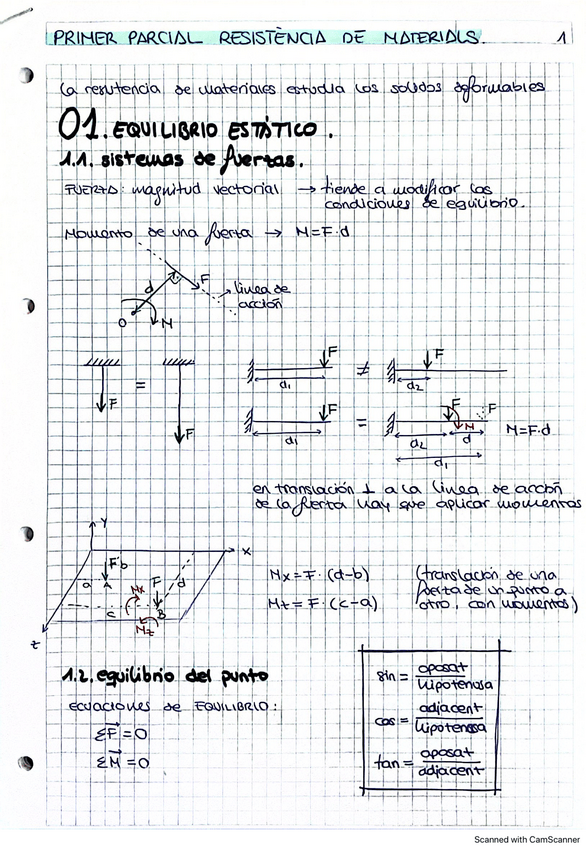 PRIMER PARCIAL RESISTÈNCIA DE MATERIALS. 1
La resistencia de materiales estudia los solidos deformables
01. EQUILIBRIO ESTÁTICO.
1.1. sistemas de fuerzas.
FUERZA: magnitud vectorial → tiende a modificar las
condiciones de equilibrio.
Momento de una fuerza → M=F·d
d F
linea de
acción
O M
F = F
F ≠ F
d₁ d₂
F = F F
M
d₁ d₂ d M=F·d
d₁
en translación ⊥ a la linea de acción
de la fuerza hay que aplicar momentos
Y
X
F b
a A Mx F d
c B
Mz
z
Mx = F·(d-b)
Mz = F·(c-a)
(translación de una
fuerza de un punto a
otro, con momentos)
1.2. equilibrio del punto
ECUACIONES de EQUILIBRIO:
ΣF=0
ΣM=0
sin = oposat
hipotenusa
cos = adjacent
hipotenusa
tan = oposat
adjacent
Scanned with CamScanner